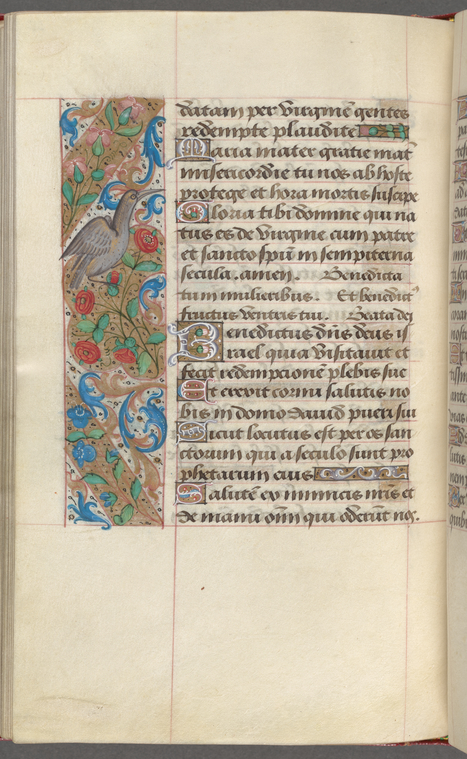 datam per virginē gentes
redempte plaudite
Maria mater gratie mat̄
misericordie tu nos ab hoste
protege et hora mortis suscipe
Gloria tibi domine qui na
tus es de virgine cum patre
et sancto spū in sempiterna
secula. amen. Benedicta
tu in mulieribus. Et benedict
fructus ventris tui. Beata dei
Benedictus dn̄s deus is
rael quia visitavit et
fecit redempcionē plebis sue
Et erexit cornu salutis no
bis in domo david pueri sui
Sicut locutus est per os san
ctorum qui a seculo sunt pro
phetarum eius
Salutē ex inimicis nr̄is et
de manu om̄i qui oderūt nos.